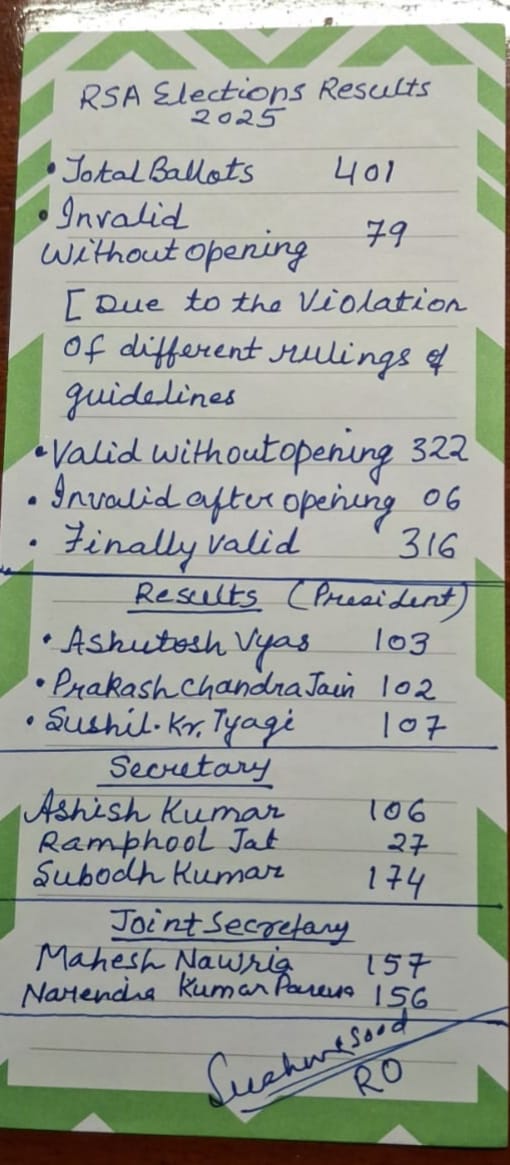 RSA Elections Results
2025
• Total Ballots 401
• Invalid
Without opening 79
[ Due to the Violation
Of different rulings &
guidelines
• Valid without opening 322
• Invalid after opening 06
• Finally valid 316
Results (President)
• Ashutosh Vyas 103
• Prakash Chandra Jain 102
• Sushil. Kr. Tyagi 107
Secretary
Ashish Kumar 106
Ramphool Jat 27
Subodh Kumar 174
Joint Secretary
Mahesh Nawria 157
Narendra Kumar 156
Sood
RO